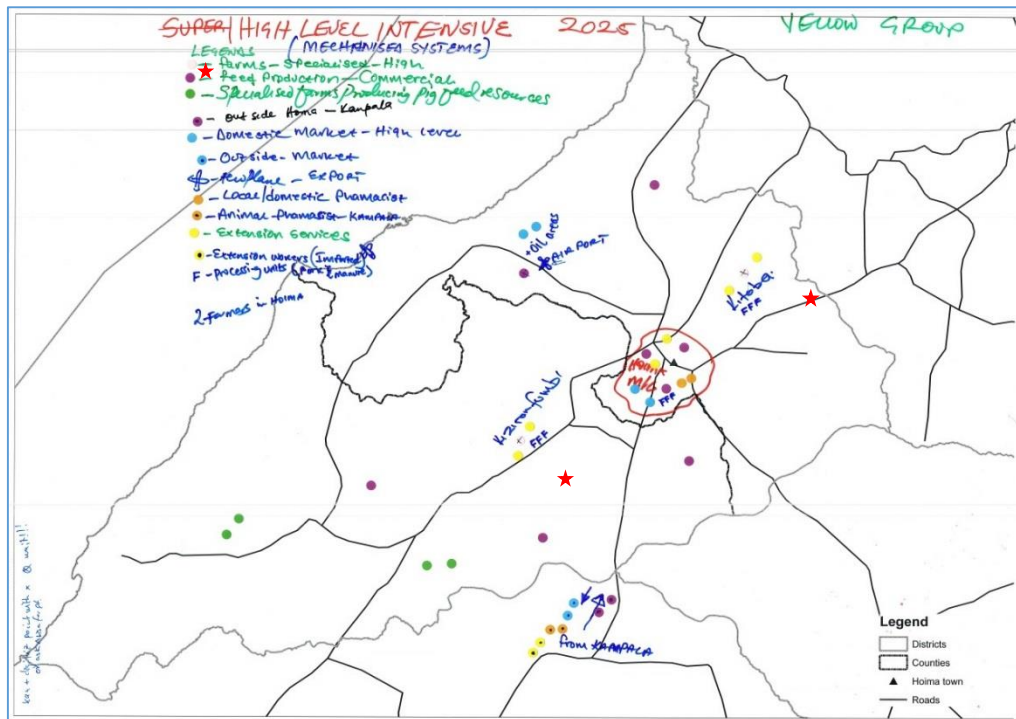 SUPER/HIGH LEVEL INTENSIVE 2025 YELLOW GROUP
(MECHANISED SYSTEMS)
LEGENDS
- Farms - Specialised - High
- Feed Production - Commercial
- Specialised farms producing pig feed resources
- outside Hoima - Kampala
- Domestic Market - High Level
- Outside - Market
- Aeroplane - EXPORT
- Local/domestic Pharmacist
- Animal Pharmacist - KAMPALA
- Extension Services
- Extension workers (Imported)
F - processing units (Pork & Manure)
2 Farmers in HOIMA
+ oil areas
AIRPORT
Kitoba
FFF
HOIMA
M/C
FFF
Kiziranfumbi
FFF
from KAMPALA
Legend
Districts
Counties
Hoima town
Roads